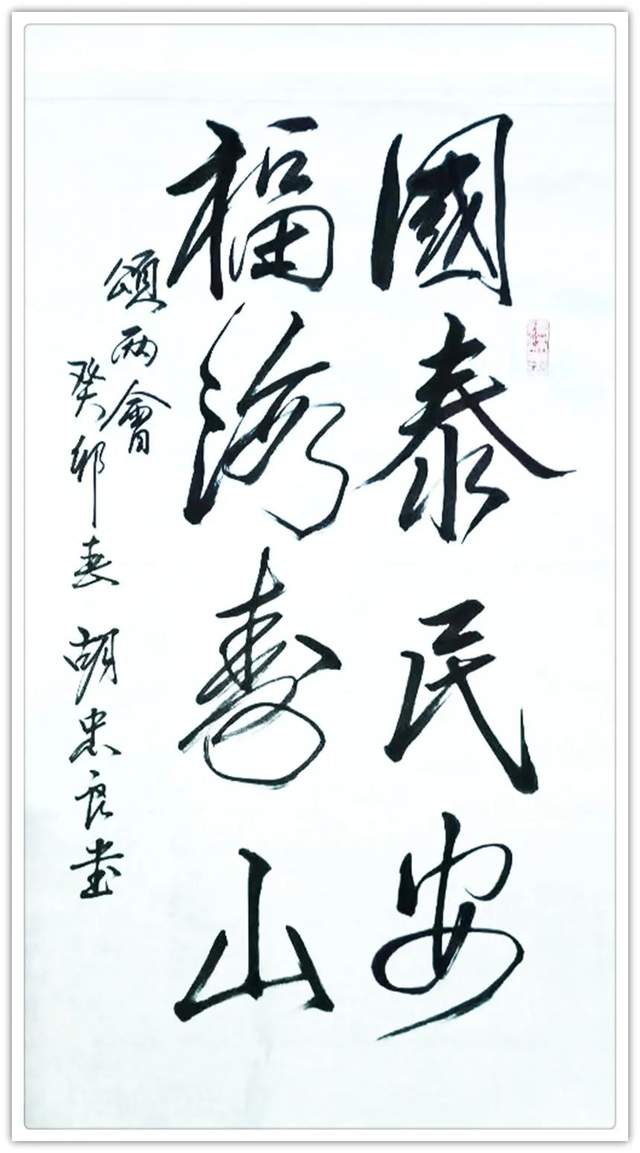 國泰民安
福海壽山
頌两會
癸卯春 胡忠良书